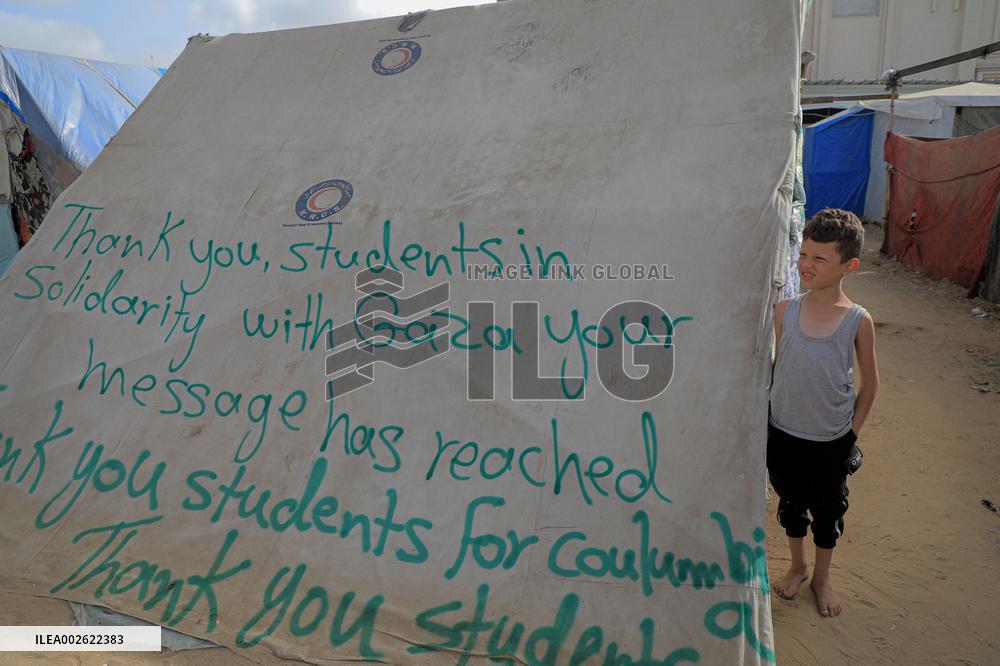 K.R.C.S.
Kuwait Red Crescent Society
Thank you, students in
Solidarity with Gaza your
message has reached
nk you students for coulumbi
Thank you students a
IMAGE LINK GLOBAL
ILG
ILEA002622383